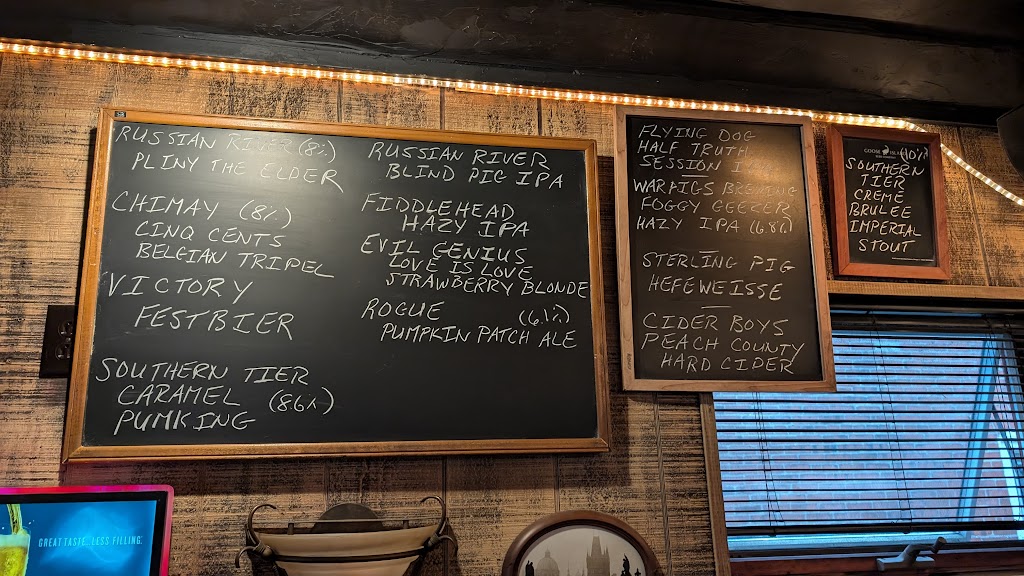 RUSSIAN RIVER (8%)
PLINY THE ELDER
CHIMAY (8%)
CINQ CENTS
BELGIAN TRIPEL
VICTORY
FESTBIER
SOUTHERN TIER
CARAMEL (8.6%)
PUMKING
RUSSIAN RIVER
BLIND PIG IPA
FIDDLEHEAD
HAZY IPA
EVIL GENIUS
LOVE IS LOVE
STRAWBERRY BLONDE
ROGUE (6.1%)
PUMPKIN PATCH ALE
FLYING DOG
HALF TRUTH
SESSION
WARPIGS BREWING
FOGGY GEEZER
HAZY IPA (6.8%)
STERLING PIG
HEFEWEISSE
CIDER BOYS
PEACH COUNTY
HARD CIDER
GOOSE
(10%)
SOUTHERN
TIER
CREME
BRULEE
IMPERIAL
STOUT
GREAT TASTE...LESS FILLING.